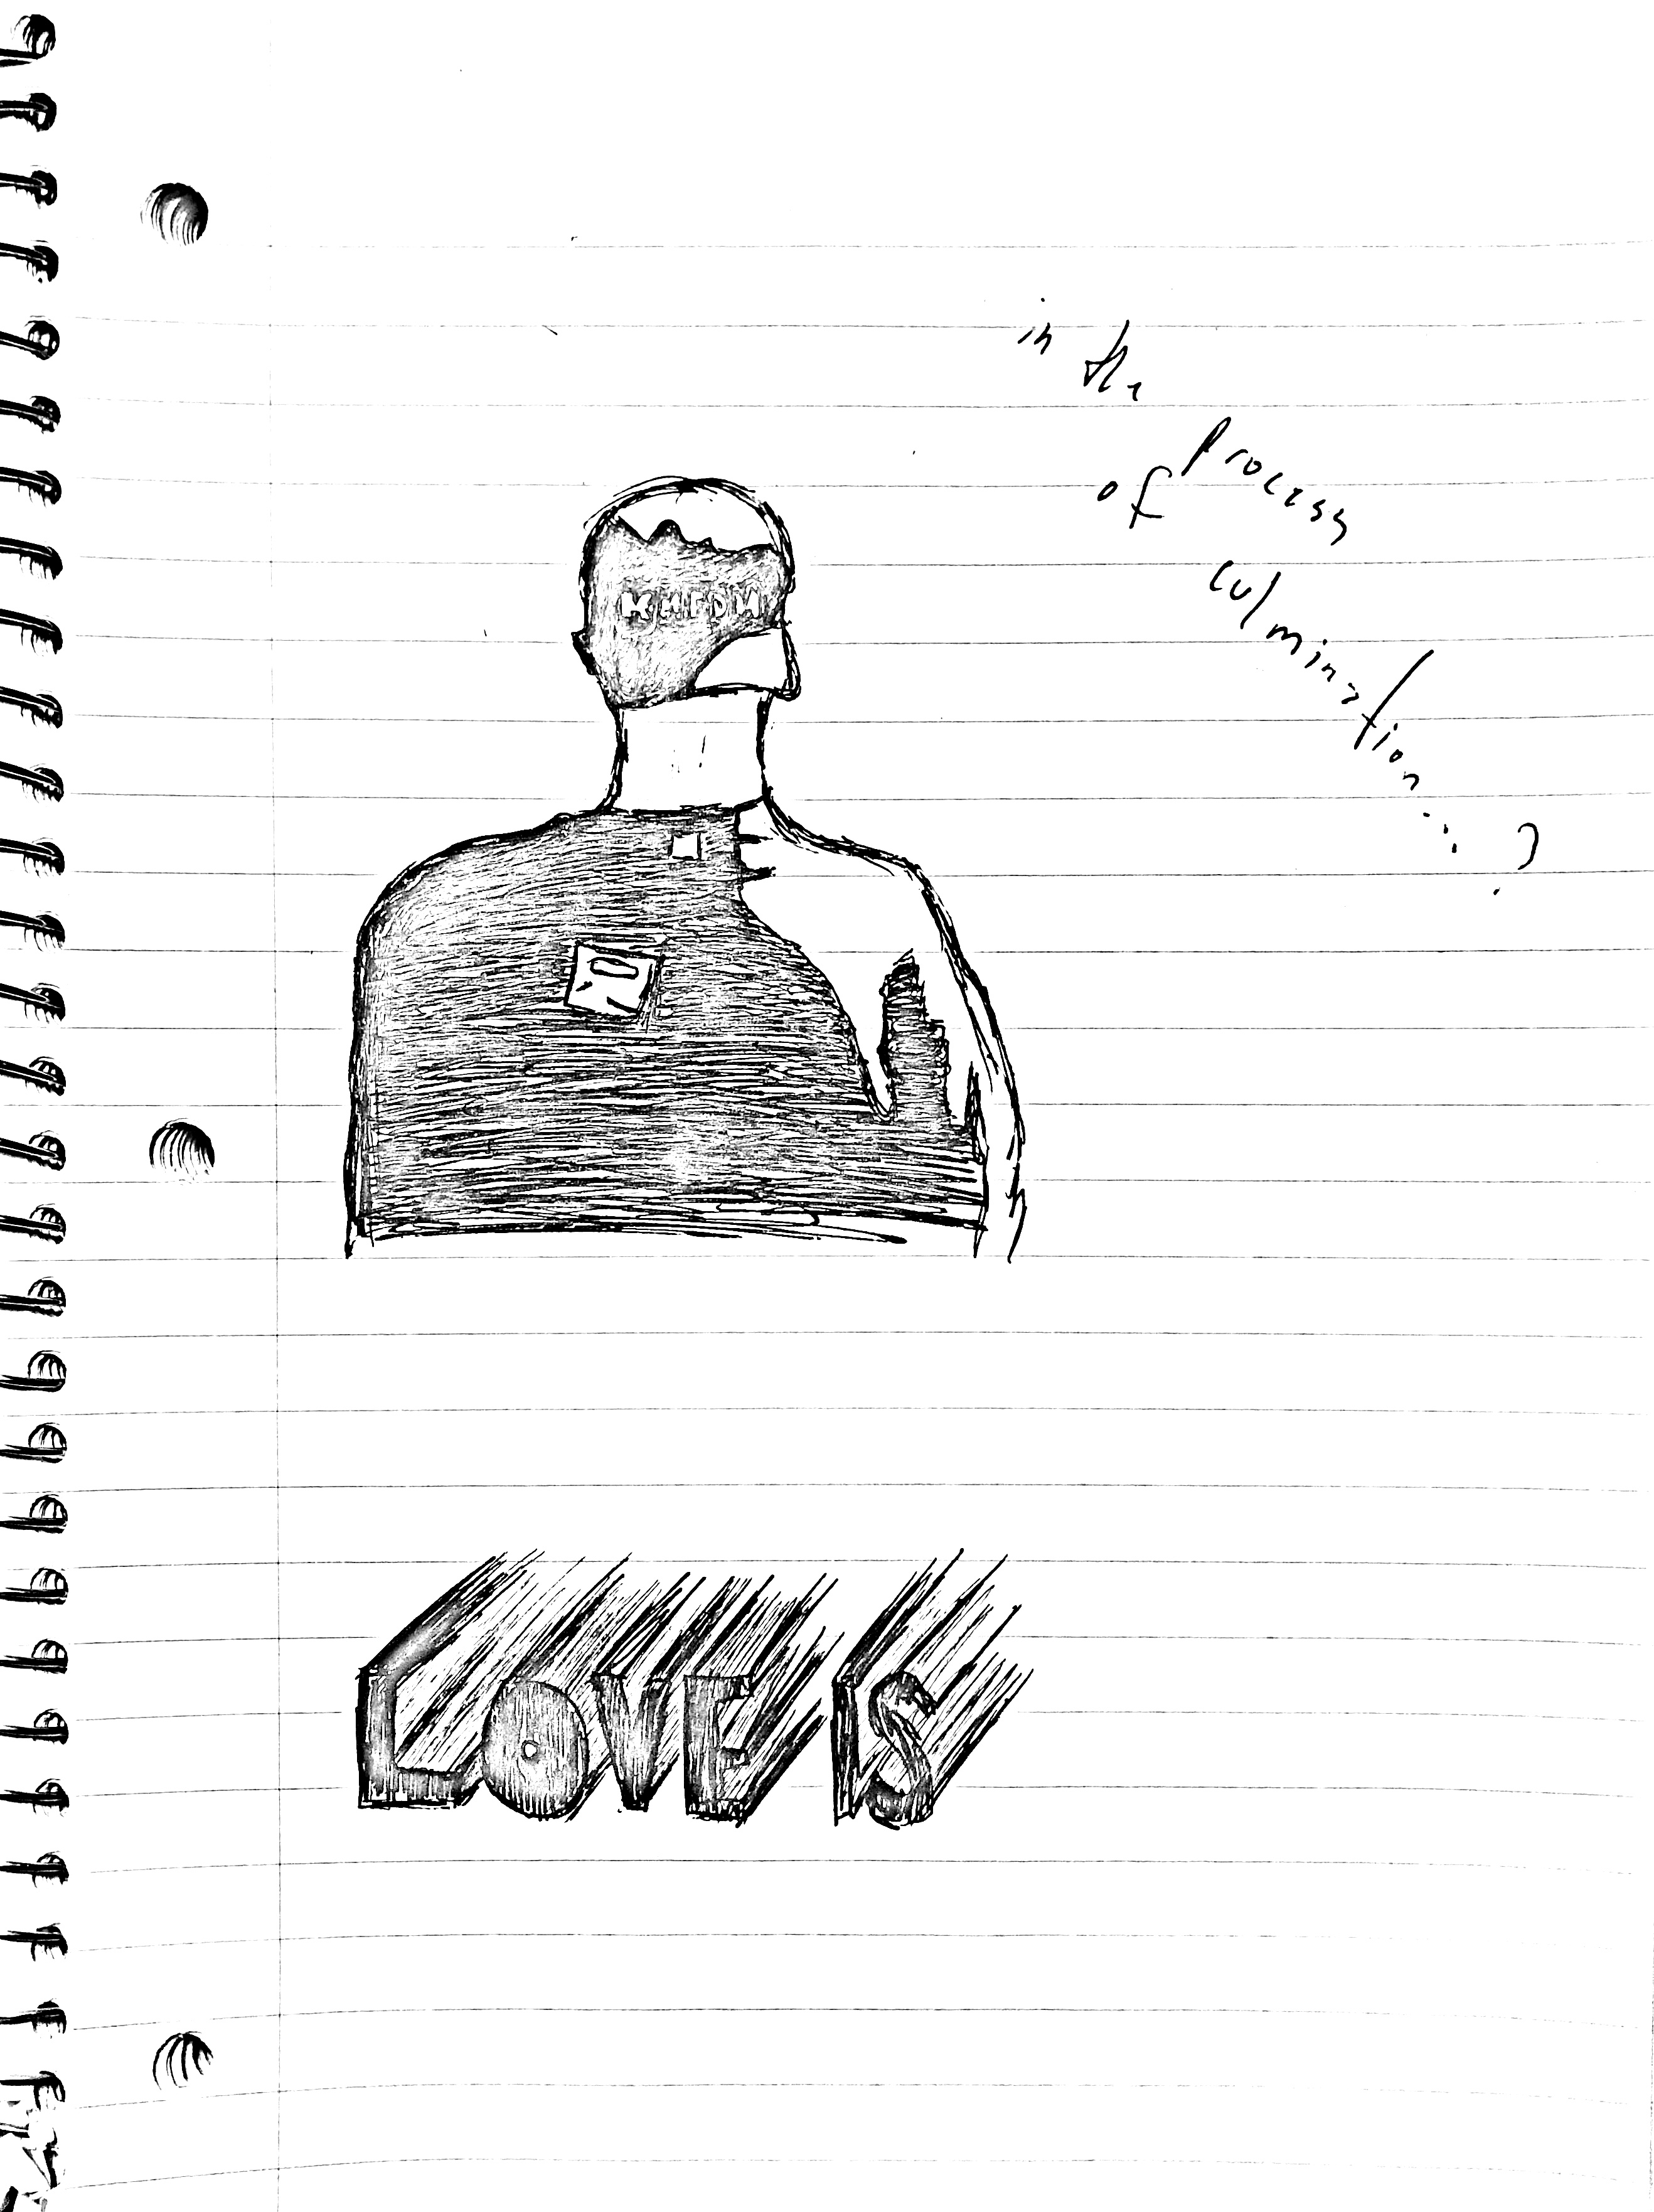 in the
process
of
culmination...?
LOVE IS